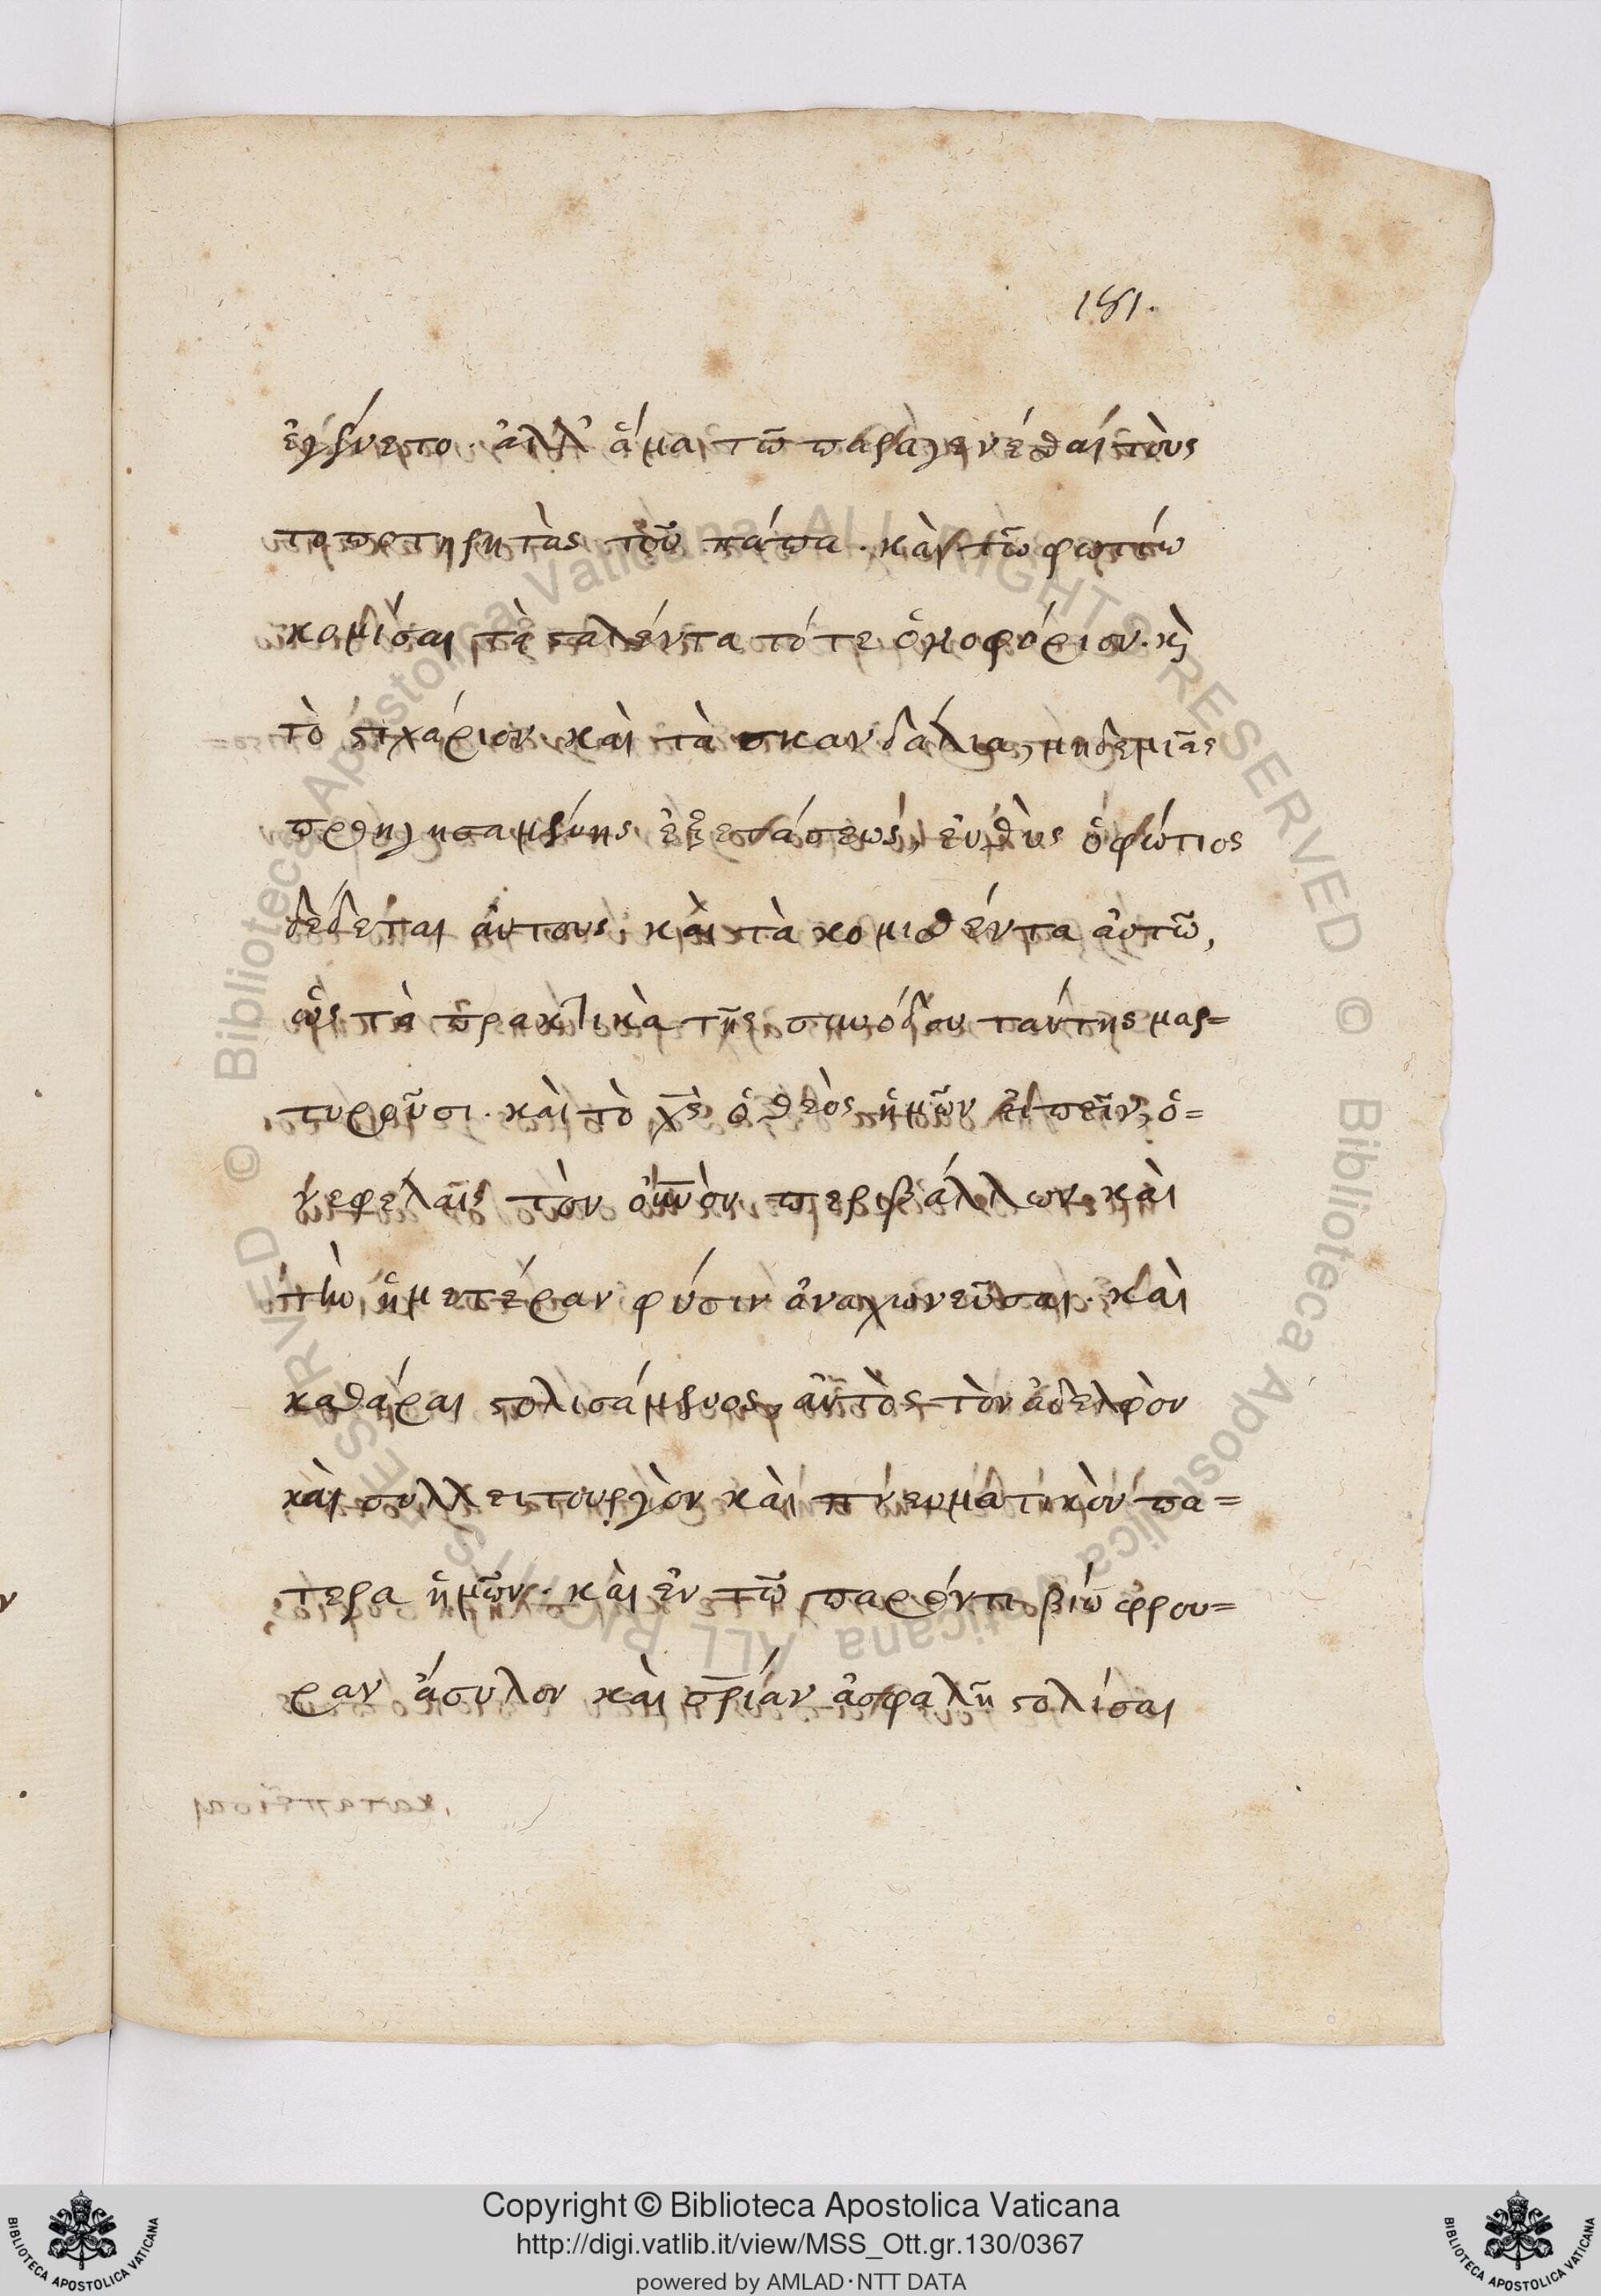 181.
ἐγένετο. ἀλλ' ἅμα τῶ παραγενέσθαι τοὺς
τοποτηρητὰς τοῦ πάπα. καὶ τῶ φωτίω
κομίσαι τὰ σταλέντα τότε ὁμοφόριον. κὶ
τὸ στιχάριον καὶ τὰ σκανδάλια, μηδεμιᾶς
προηγησαμένης ἐξετάσεως, εὐθὺς ὁ φώτιος
δέδεκται αὐτους. καὶ τὰ κομισθέντα αὐτῶ,
ὡς τὰ πρακτικὰ τῆς συνόδου ταύτης μαρ=
τυροῦσι. καὶ τὸ χ̅ε̅ ὁ θεὸς ἡμῶν εἰπεῖν, ὁ=
νεφέλαις τὸν οὐ̅ν̅ὸν περιβάλλων καὶ
τὴν ἡμετέραν φύσιν ἀναχωνεῦσαι. καὶ
καθάραι στολισάμενος, αὐτὸς τὸν ἀδελφὸν
καὶ συλλειτουργὸν καὶ πνευματικὸν πα=
τερα ἡμῶν. καὶ ἐν τῶ παρόντι βίω φρου=
ραν ἄσυλον καὶ σ̅ρίαν ἀσφαλῆ στολίσαι
Copyright © Biblioteca Apostolica Vaticana
http://digi.vatlib.it/view/MSS_Ott.gr.130/0367
powered by AMLAD·NTT DATA
BIBLIOTECA APOSTOLICA VATICANA
BIBLIOTECA APOSTOLICA VATICANA
© Biblioteca Apostolica Vaticana ALL RIGHTS RESERVED © Biblioteca Apostolica Vaticana ALL RIGHTS RESERVED